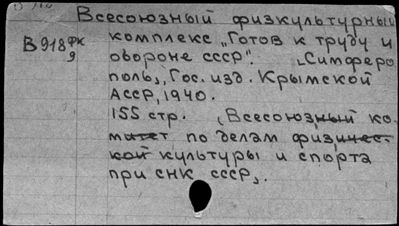 Всесоюзный физкультурный
В918 фк
9
комплекс „Готов к труду и
обороне СССР". [Симферо
поль], Гос. изд. Крымской
АССР, 1940.
155 стр. [Всесоюзный ко-
митет по делам физичес-
кой культуры и спорта
при СНК СССР].